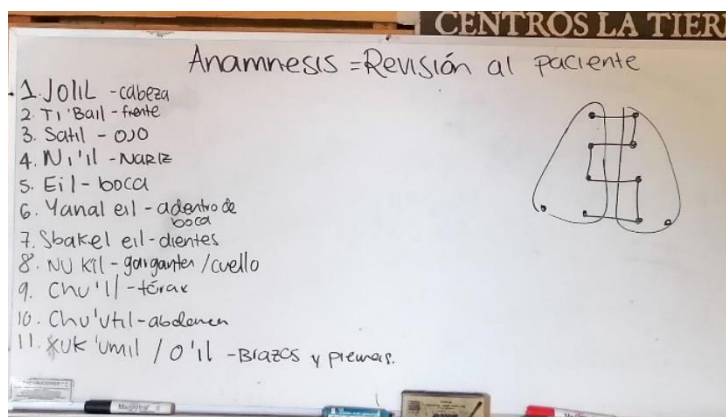 CENTROS LA TIER
Anamnesis = Revisión al paciente
1. Jolil - cabeza
2. Ti'Bail - frente
3. Satil - ojo
4. Ni'il - NARIZ
5. Eil - boca
6. Yanal eil - adentro de
boca
7. Sbakel eil - dientes
8. NU Kil - garganta /cuello
9. Chu'il - tórax
10. Chu'util - abdomen
11. XUK'umil / O'il - Brazos y piernas.